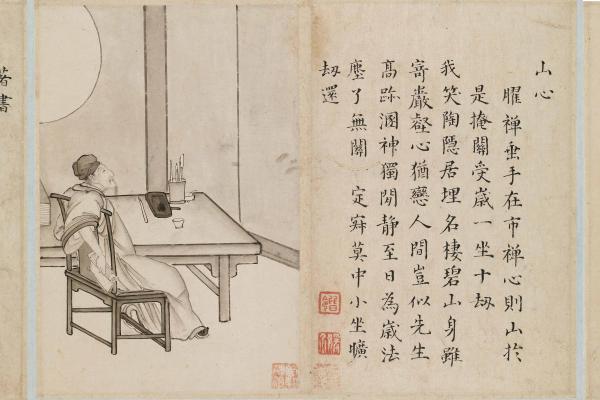 山心
臞禪垂手在市禪心則山於
是掩關受歲一坐十劫
我笑陶隱居埋名棲碧山身雖
寄巖壑心猶戀人間豈似先生
高跡溷神獨閒靜至日為歲法
塵了無關一定寂莫中小坐曠
劫還
著書